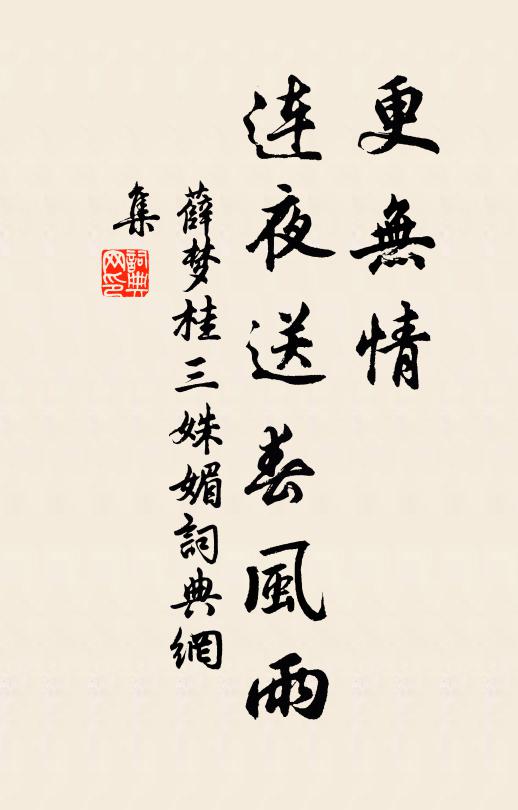 更無情
连夜送春風雨
薛梦桂三姝媚詞典網
集
詞典
网印